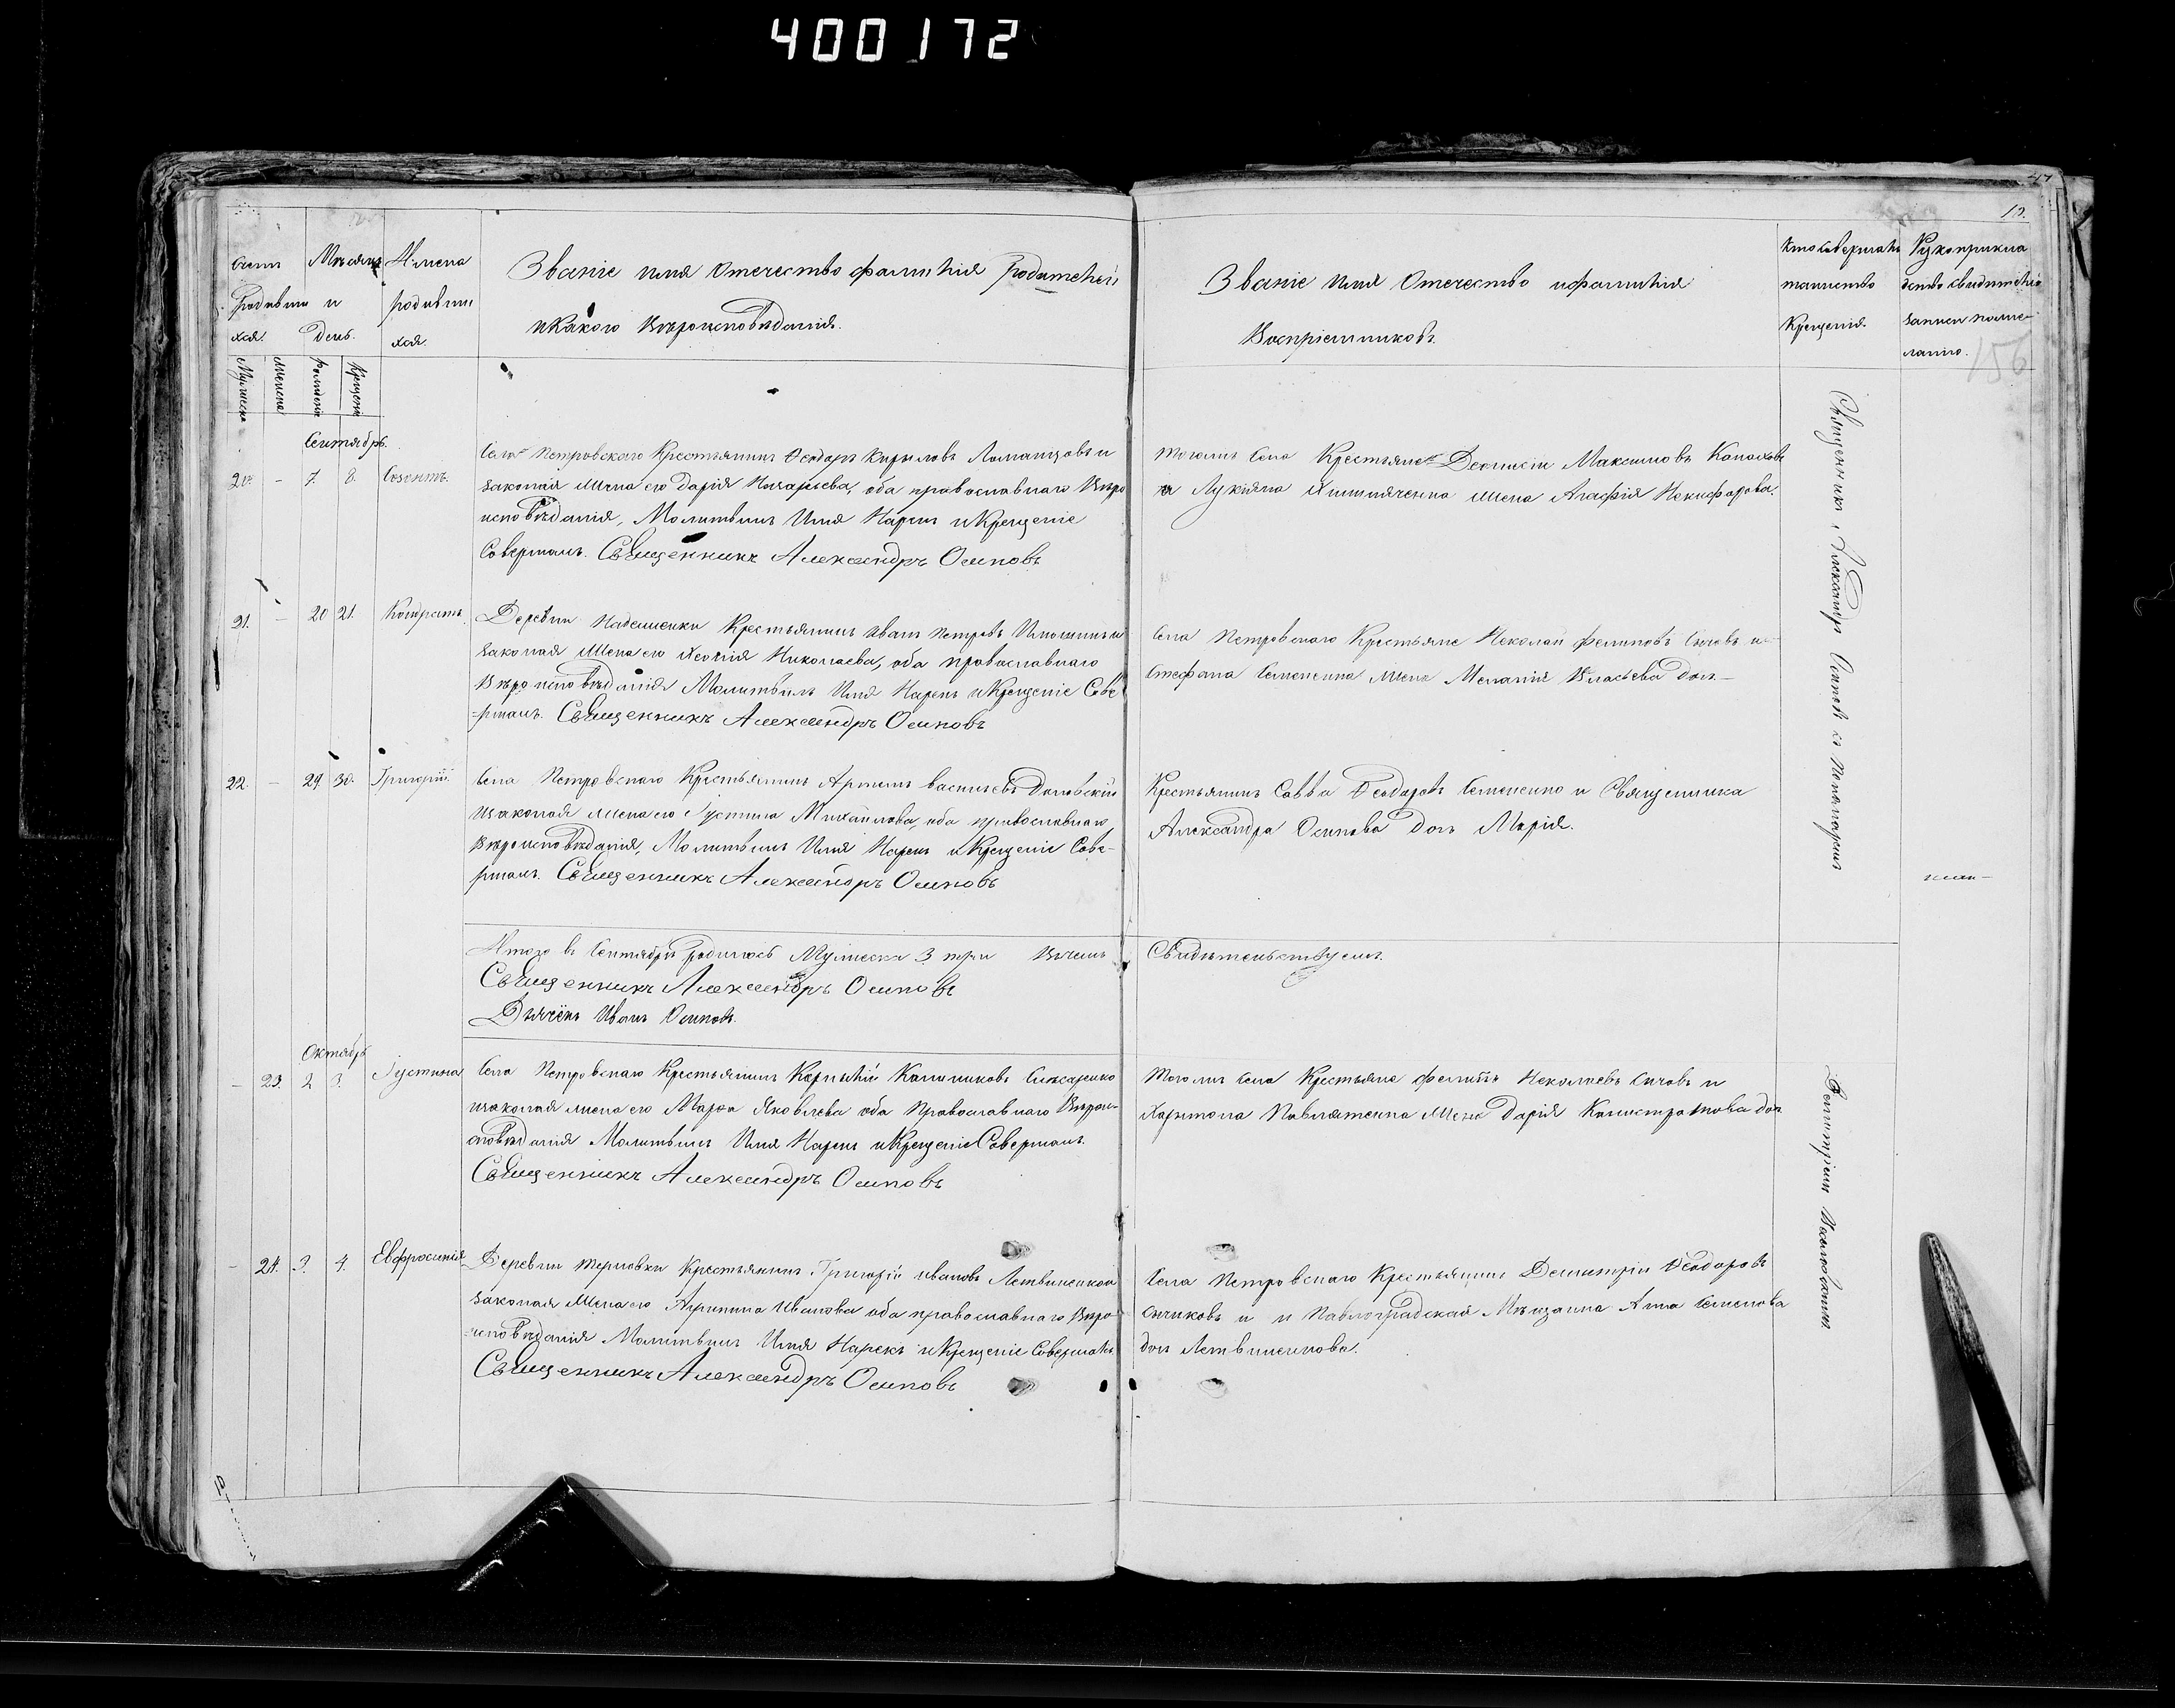 400172
10.
156
Счетъ Родившихся. Мѣсяцъ и День. Имена родившихся.
Званіе имя отечество фамилія Родителей
и какого Вѣроисповѣданія.
Званіе имя Отечество и фамилія
Воспріемниковъ.
Кто совершалъ
таинство
Крещенія.
Рукоприкла
дство свидѣтелей
записи по же-
ланію.
Мужеска Женска Рожденія Крещенія
Сентябрь.
20 – 7. 8. Созонтъ.
Села Петровскаго Крестьянинъ Ѳеодоръ Кириловъ и
законная жена его Дарія Назарьева, оба православнаго Вѣро
исповѣданія, Молитвилъ Имя Нарекъ и Крещеніе
Совершалъ. Священникъ Александръ Осиповъ
Тогожъ Села Крестьяне Максимовъ
и Лукіяна жена Агафія Никифорова.
21. – 20 21. Кондратъ.
Деревни Надеженки Крестьянинъ Иванъ Петровъ и
законная жена его Николаева, оба православнаго
Вѣроисповѣданія Молитвилъ Имя Нарекъ и Крещеніе Сове
=ршалъ. Священникъ Александръ Осиповъ
Села Петровскаго Крестьяне Николай Филиповъ Сычовъ и
Стефана Семенена жена Меланія Власьева дочь
22. – 29. 30. Григорій.
Села Петровскаго Крестьянинъ Артемъ Васильевъ
и законная жена его Іустина Михайлова, оба православнаго
Вѣроисповѣданія, Молитвилъ Имя Нарекъ и Крещеніе Сове-
ршалъ. Священникъ Александръ Осиповъ
Крестьянинъ Савва Ѳеодоровъ Семененко и Священника
Александра Осипова дочь Марія.
Священникъ Александръ Осиповъ съ Пономаремъ
Димитріемъ
Итого въ Сентябрѣ родилось Мужеска 3 три Въ чемъ
Свидѣтельствуемъ.
Священникъ Александръ Осиповъ
Дьячекъ Иванъ Осиповъ.
Октябрь
– 23. 2 3. Іустина
Села Петровскаго Крестьянинъ Корнилій
и законная жена его Марѳа Яковлева оба Православнаго Вѣрои-
сповѣданія Молитвилъ Имя Нарекъ и Крещеніе Совершалъ.
Священникъ Александръ Осиповъ
Тогожъ Села Крестьяне Филипъ Николаевъ Сичовъ и
Харитона жена Дарія Калистратова дочь
– 24. 3. 4. Евфросинія
Деревни Терновки Крестьянинъ Григорій Ивановъ
законная Жена его Агрипина Иванова оба православнаго Вѣро
=исповѣданія Молитвилъ Имя Нарекъ и Крещеніе Совершалъ
Священникъ Александръ Осиповъ
Села Петровскаго Крестьянинъ Димитрій Ѳеодоровъ
и и Павлоградская Мѣщанка Анна Семенова
дочь Летвиненкова.